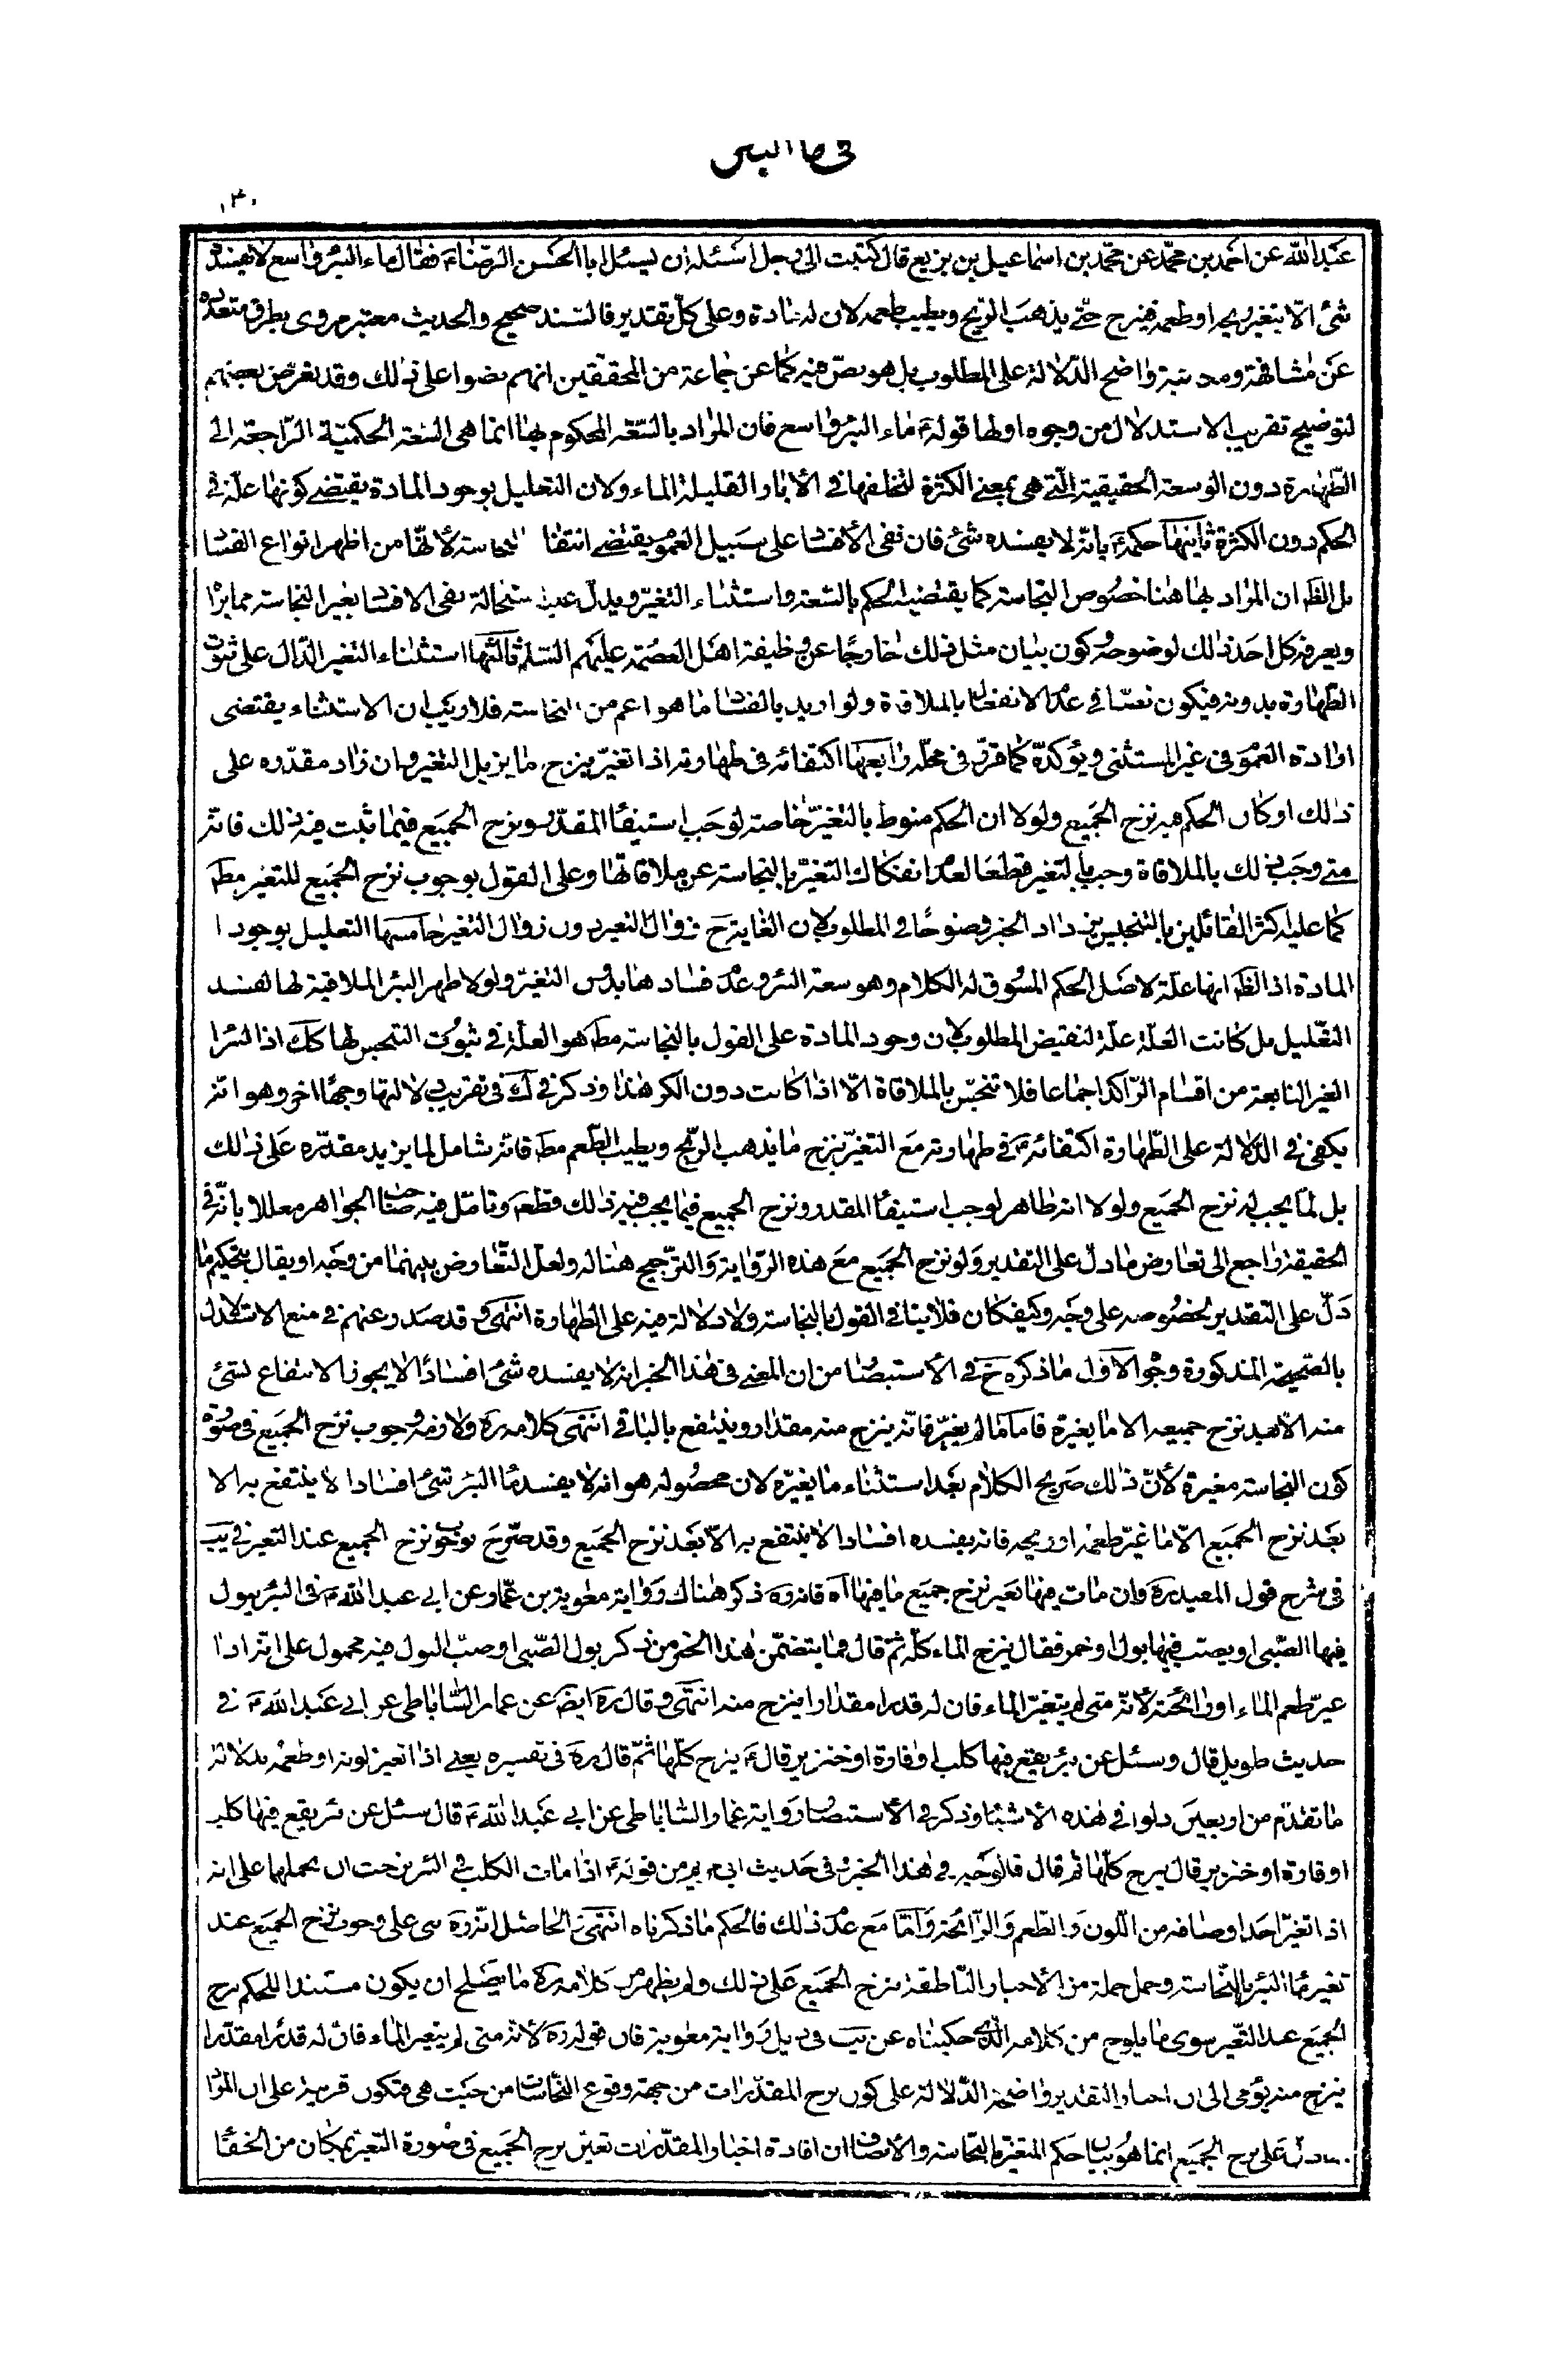 في ماء البئر
عبد الله عن احمد بن محمد عن محمد بن اسماعيل بن بزيع قال كتبت الى رجل اسئله ان يسئل ابا الحسن الرضا ء فقال ماء البئر واسع لا يفسده
شئ الّا ان يتغير ريحه او طعمه فينزح حتى يذهب الريح ويطيب طعمه لان له مادة وعلى كلّ تقدير فالسّند صحيح والحديث معتبر مروى بطرق متعدّدة
عن مشافهة ومكاتبة واضح الدّلالة على المطلوب بل هو نصّ فيه كما عن جماعة من المحققين انهم نصوا على ذلك وقد تعرّض بعضهم
لتوضيح تقريب الاستدلال من وجوه اولها قوله ء ماء البئر واسع فان المراد بالسّعة المحكوم بها انما هى السّعة الحكميّة الرّاجعة الى
الطّهارة دون الوسعة الحقيقية الّتي هى بمعنى الكثرة لتخلفها في الأبار القليلة الماء ولان التعليل بوجود المادة يقتضى كونها علّة في
الحكم دون الكثرة ثانيها حكمه ء بانّه لا يفسده شئ فان نفى الأفساد على سبيل العموم يقتضى انتفاء النجاسة لأنّها من اظهر انواع الفساد
بل الظ ان المراد بها هنا خصوص النجاسة كما يقتضيه الحكم بالسّعة واستثناء التغيّر ويدل عليه استحالة نفى الافساد بغير النجاسة مما يرا
ويعرفه كل احد ذلك لوضوحه وكون بيان مثل ذلك خارجًا عن وظيفة اهل العصمة عليهم السّلم ثالثها استثناء التغير الدّال على ثبوت
الطّهارة بدونه فيكون نصّا في عدم الانفعال بالملاقاة ولو اريد بالفساد ما هو اعم من النجاسة فلا ريب ان الاستثناء يقتضى
ارادة العموم في غير المستثنى ويؤكدّه كما قرّر في محلّه رابعها اكتفائه في طهارته اذا تغيّر بنزح ما يزيل التغير وان زاد مقدّره على
ذلك او كان الحكم فيه نزح الجميع ولولا ان الحكم منوط بالتغيّر خاصة لوجب استيفاء المقدّر ونزح الجميع فيما ثبت فيه ذلك فانّه
متى وجب ذلك بالملاقاة وجب بالتغير قطعًا لعدم انفكاك التغيّر بالنجاسة عن ملاقاتها وعلى القول بوجوب نزح الجميع للتغير مطلقا
كما عليه اكثر القائلين بالتنجيس يزداد الخبر وضوحًا في المطلوب لان الغاية ح زوال التغير دون زوال التغير خامسها التعليل بوجود
المادة اذ الظ انها علّة لاصل الحكم المسوق له الكلام وهو سعة البئر وعدم فسادها بدون التغيّر ولولا طهر البئر الملاقية لها لفسد
التعليل بل كانت العلّة علّة لنقيض المطلوب لان وجود المادة على القول بالنجاسة مط هو العلّة في ثبوت التنجيس لها كك اذ البئر
الغير النابعة من اقسام الرّاكد اجماعا فلا تنجّس بالملاقاة الّا اذا كانت دون الكر هذا وذكر في ك في تقريب دلالتها وجهًا اخر وهو انّه
يكفى في الدّلالة على الطّهارة اكتفائه ء في طهارته مع التغيّر بنزح ما يذهب الرّيح ويطيب الطّعم مط فانّه شامل لما يزيد مقدّره على ذلك
بل لمّا يجب له نزح الجميع ولولا انه طاهر لوجب استيفاء المقدر ونزح الجميع فيما يجب فيه ذلك قطعًا وتامّل فيه صاحب الجواهر معللا بانّه في
الحقيقة راجع الى تعارض ما دلّ على التقدير ولو نزح الجميع مع هذه الرّواية والترّجيح هنا له ولعل التّعارض بينهما من وجه او يقال بتحكيم ما
دلّ على التقدير لخصوصه على وجه وكيف كان فلا ينافي القول بالنجاسة ولا دلالة فيه على الطّهارة انتهى وقد صدر عنهم في منع الاستدلال
بالصّحيحة المذكورة وجوه الاول ما ذكره خ في الأستبصار من ان المعنى في هذا الخبر انه لا يفسده شئ افسادًا لا يجوز الانتفاع بشئ
منه الّا بعد نزح جميعه الا ما يغيره فاما ما لم يغيّر فانه ينزح منه مقدار وينتفع بالباقى انتهى كلامه ره ولازمه وجوب نزح الجميع في صورة
كون النجاسة مغيرة لأنّ ذلك صريح الكلام بعد استثناء ما يغيّره لان محصوله هو انه لا يفسد ماء البئر شئ افسادا لا ينتفع به الا
بعد نزح الجميع الّا ما غيّر طعمه او ريحه فانه يفسده افسادا لا ينتفع به الّا بعد نزح الجميع وقد صرّح بوجوب نزح الجميع عند التغير في يب
في شرح قول المفيد ره وان مات فيها بعير نزح جميع ما فيها اه فانه ره ذكر هناك رواية معوية بن عمّار عن ابى عبد الله ء في البئر يبول
فيها الصّبى او يصبّ فيها بول او خمر فقال ينزح الماء كلّه ثم قال فما يتضمّن هذا الخبر من ذكر بول الصّبى او صبّ البول فيه محمول على انّه اذا
غيرّ طعم الماء او رائحته لأنّه متى لم يتغيّر الماء فان له قدرا مقدارا ينزح منه انتهى وقال ره ايض عن عمار السّاباطى عن ابى عبد الله ء في
حديث طويل قال وسئل عن بئر يقع فيها كلب او فارة او خنزير قال ء ينزح كلّها ثمّ قال ره في تفسيره يعنى اذا تغير لونه او طعمه بدلالة
ما تقدّم من اربعين دلوا في هذه الأشياء وذكر في الأستبصار رواية عمار السّاباطى عن ابى عبد الله ء قال سئل عن بئر يقع فيها كلب
او فارة او خنزير قال ينزح كلّها ثم قال فالوجه في هذا الخبر وفى حديث ابى مريم من قوله ء اذا مات الكلب في البئر نزحت ان يحملها على انه
اذا تغيّر احد اوصافه من اللّون والطّعم والرّائحة وامّا مع عدم ذلك فالحكم ما ذكرناه انتهى والحاصل انّه ره بنى على وجوب نزح الجميع عند
تغير ماء البئر بالنّجاسة وحمل جملة من الأخبار النّاطقة بنزح الجميع على ذلك ولم يظهر من كلامه ره ما يصلح ان يكون مستندا للحكم بنزح
الجميع عند التّغير سوى ما يلوح من كلامه الّذى حكيناه عن يب في ذيل رواية معوية فان قوله ره لأنه متى لم يتغير الماء فان له قدرا مقدّرا
ينزح منه يؤمى الى ان اخبار التقدير واضحة الدّلالة على كون نزح المقدّرات من جهة وقوع النّجاسات من حيث هى فتكون قرينة على ان المراد
دلّ على نزح الجميع انما هو بيان حكم المتغيّر بالنّجاسة والأنصاف ان افادة اخبار المقدّرات تعيّن نزح الجميع في صورة التغير بمكان من الخفاء